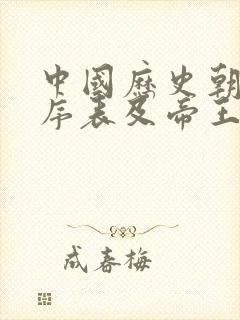 中國歷史朝
序表及帝王
成春梅